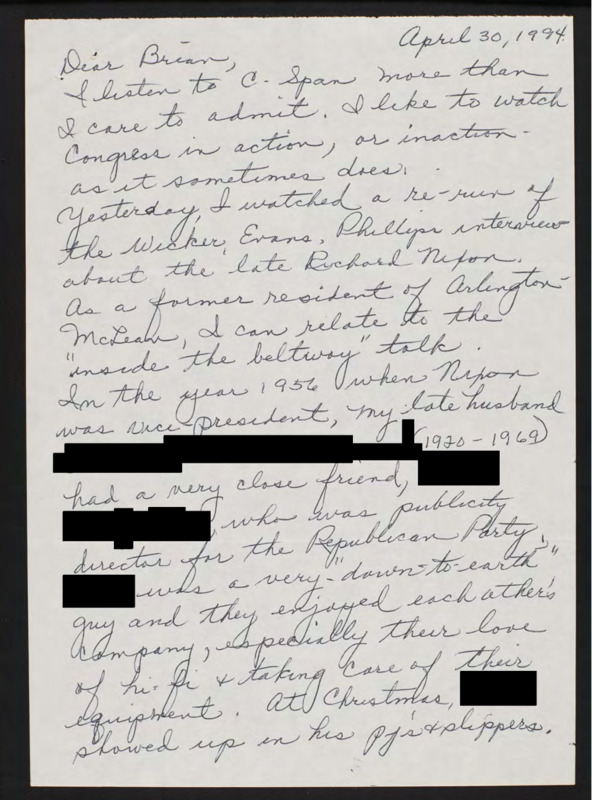 April 30, 1994.
Dear Brian,
I listen to C-Span more than
I care to admit. I like to watch
Congress in action, or inaction-
as it sometimes does.
Yesterday, I watched a re-run of
the Wicker, Evans, Phillips interview
about the late Richard Nixon.
As a former resident of Arlington-
McLean, I can relate to the
"inside the beltway" talk.
In the year 1956 when Nixon
was vice-president, my late husband
(1920-1969)
had a very close friend,
, who was publicity
director for the Republican Party.
was a very "down-to-earth"
guy and they enjoyed each other's
company, especially their love
of hi-fi & taking care of their
equipment. At Christmas,
showed up in his pj's & slippers.